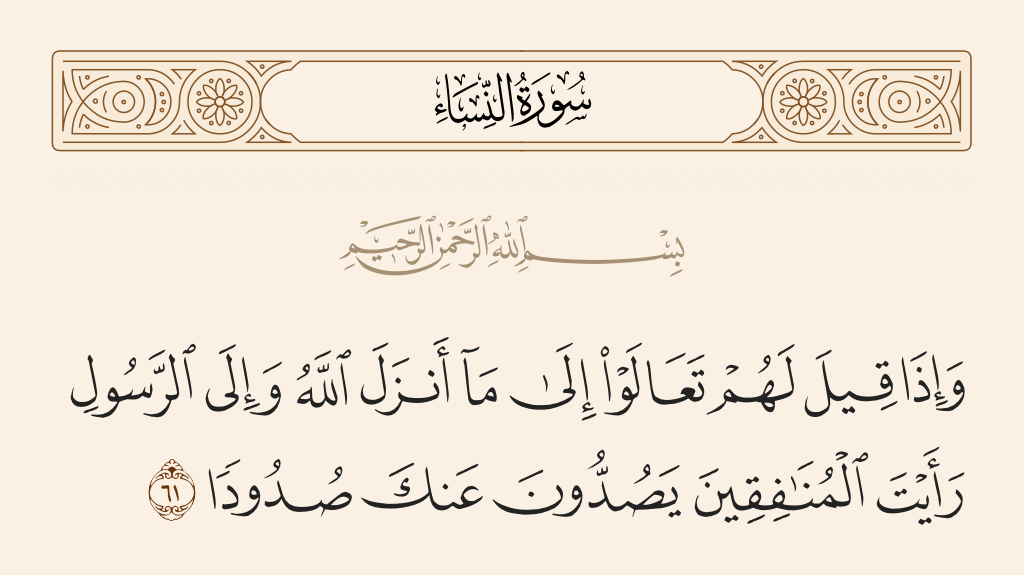 سُورَةُ النِّسَاءِ
بِسْمِ ٱللَّهِ ٱلرَّحْمَٰنِ ٱلرَّحِيمِ
وَإِذَا قِيلَ لَهُمْ تَعَالَوْا۟ إِلَىٰ مَآ أَنزَلَ ٱللَّهُ وَإِلَى ٱلرَّسُولِ
رَأَيْتَ ٱلْمُنَـٰفِقِينَ يَصُدُّونَ عَنكَ صُدُودًا ٦١